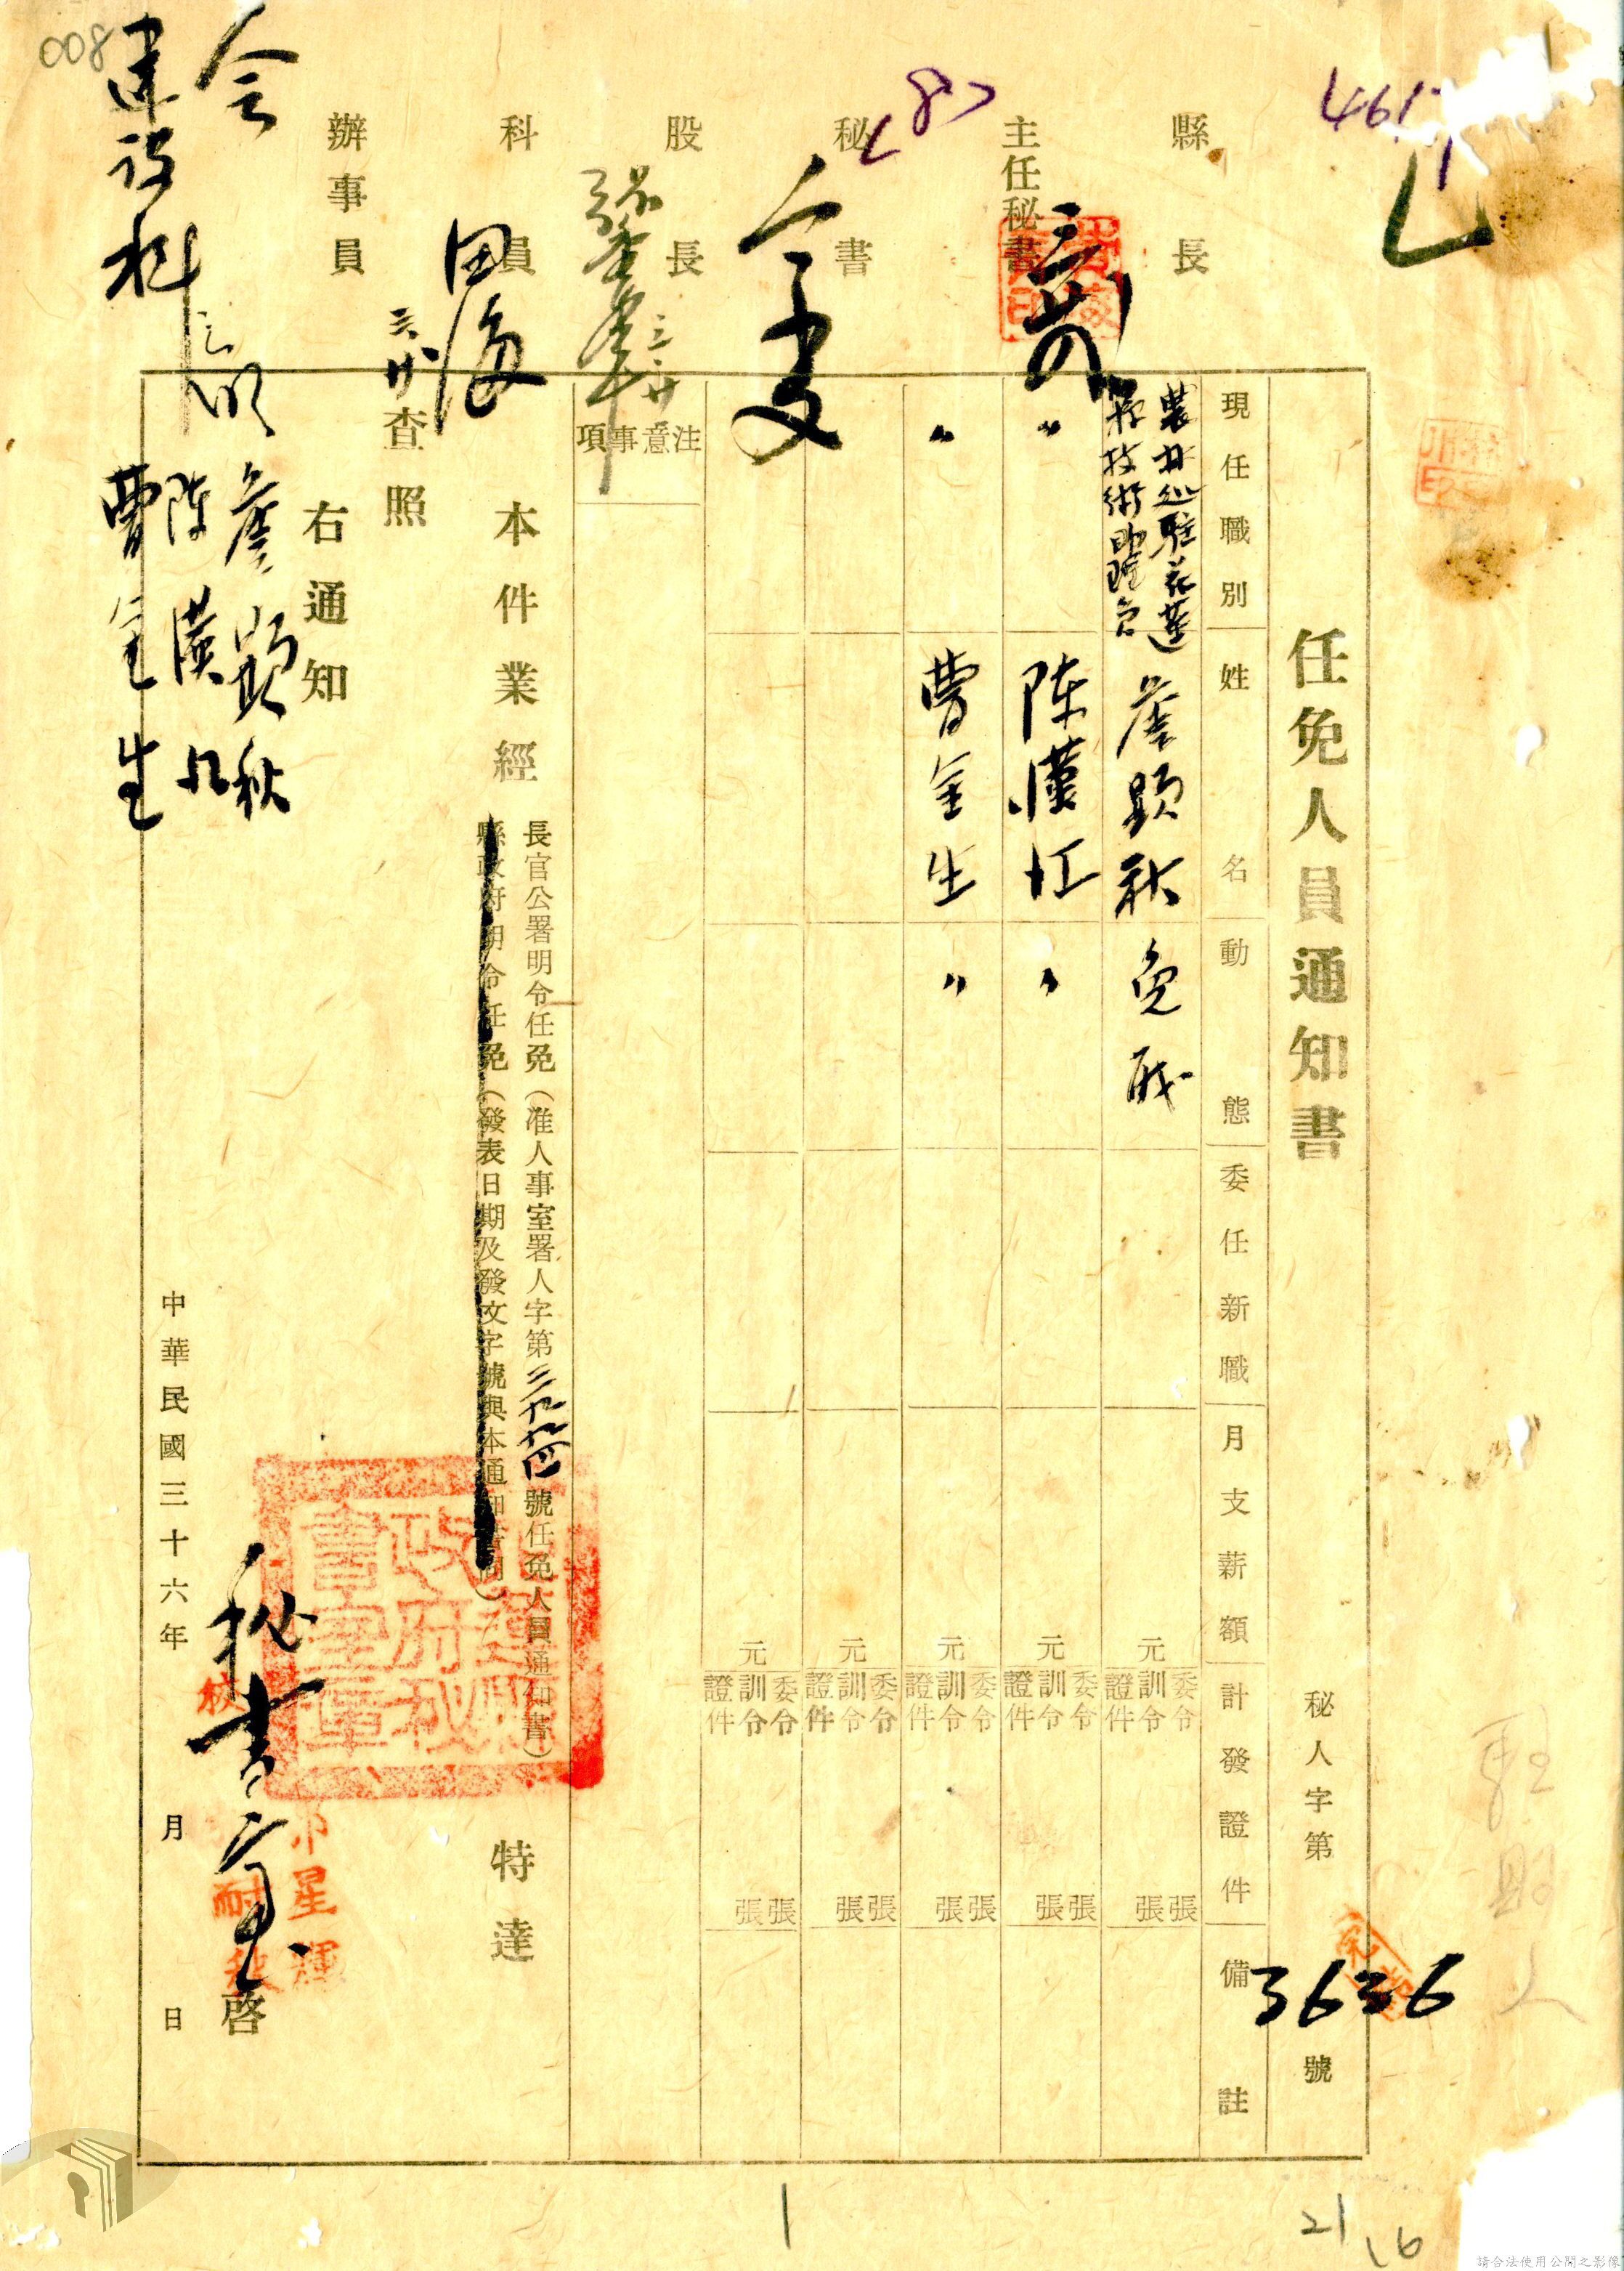 008
461
<8>
縣長
主任秘書
秘書
股長
科員
辦事員
會
建設科
任免人員通知書
秘人字第3636號
現任職別
姓名
動態
委任新職
月支薪額
計發證件
備註
農林処駐花蓮
縣技術助理員
詹顯秋
免職
元
委令 張
訓令 張
證件
〃
陳漢江
〃
元
委令 張
訓令 張
證件
〃
曹金生
〃
元
委令 張
訓令 張
證件
元
委令 張
訓令 張
證件
元
委令 張
訓令 張
證件
注意事項
本件業經
長官公署明令任免(准人事室署人字第三九九四號任免人員通知書)
縣政府明令任免(發表日期及發文字號與本通知書同)
特達
查照
右通知
詹顯秋
陳漢江
曹金生
秘書室啓
中華民國三十六年 月 日
21
16
請合法使用公開之影像